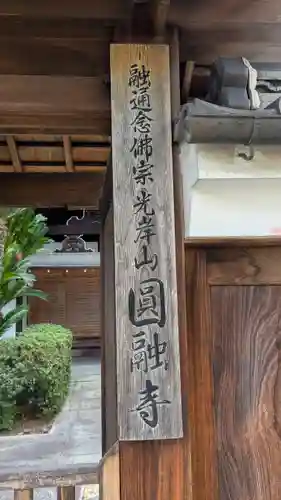 融通念佛宗光岸山圓融寺